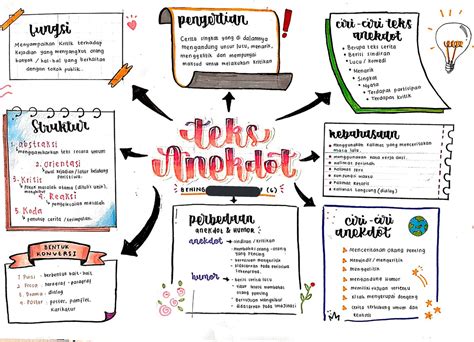 fungsi
Menyampaikan kritik terhadap
kejadian yang menyangkut orang
banyak / hal-hal yang berkaitan
dengan tokoh publik.
pengertian
Cerita singkat yang di dalamnya
mengandung unsur lucu, menarik,
menggelitik dan mempunyai
maksud untuk melakukan kritikan
ciri-ciri teks
anekdot
Berupa teks cerita
Berisi sindiran
Lucu / komedi
Menarik
Singkat
Nyata
Terdapat partisipan
Terdapat kritik
Struktur
1. abstraksi
menggambarkan teks secara umum
2. orientasi
awal kejadian / latar belakang
peristiwa.
3. Krisis
Pokok masalah utama
4. Reaksi
penyelesaian masalah
5. Koda
penutup cerita / kesimpulan.
teks
Anekdot
BENING (6)
kebahasaan
menggunakan kalimat yang menceritakan
masa lalu.
menggunakan kata kerja aksi.
kalimat perintah.
kalimat seru
konjungsi waktu
kalimat retoris
kalimat langsung (dialog)
BENTUK
KONVERSI
1 Puisi - berbentuk bait-bait
2 Prosa - paragraf / paragraf
3 Drama - dialog
4 Poster - poster, pamflet,
karikatur
perbedaan
anekdot & humor
anekdot → sindiran / kritikan
- membahas orang-orang
yang penting
- bersifat menggelitik
- didasarkan pada peristiwa
humor → menghibur
- membahas orang-orang
umum
- bersifat mengundang tawa
- didasarkan pada imajinasi
ciri-ciri
anekdot
Menceritakan orang penting
Menyindir / mengkritik
menggelitik
mengandung humor
memiliki tujuan tertentu
kisah menyerupai dongeng
cerita tentang hewan dan
manusia terhubung umum dan
realistis